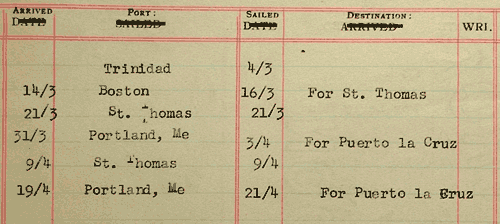 ARRIVED PORT: SAILED DESTINATION:
DATE SAILED DATE ARRIVED WRI.
Trinidad 4/3
14/3 Boston 16/3 For St. Thomas
21/3 St. Thomas 21/3
31/3 Portland, Me 3/4 For Puerto la Cruz
9/4 St. Thomas 9/4
19/4 Portland, Me 21/4 For Puerto la Cruz